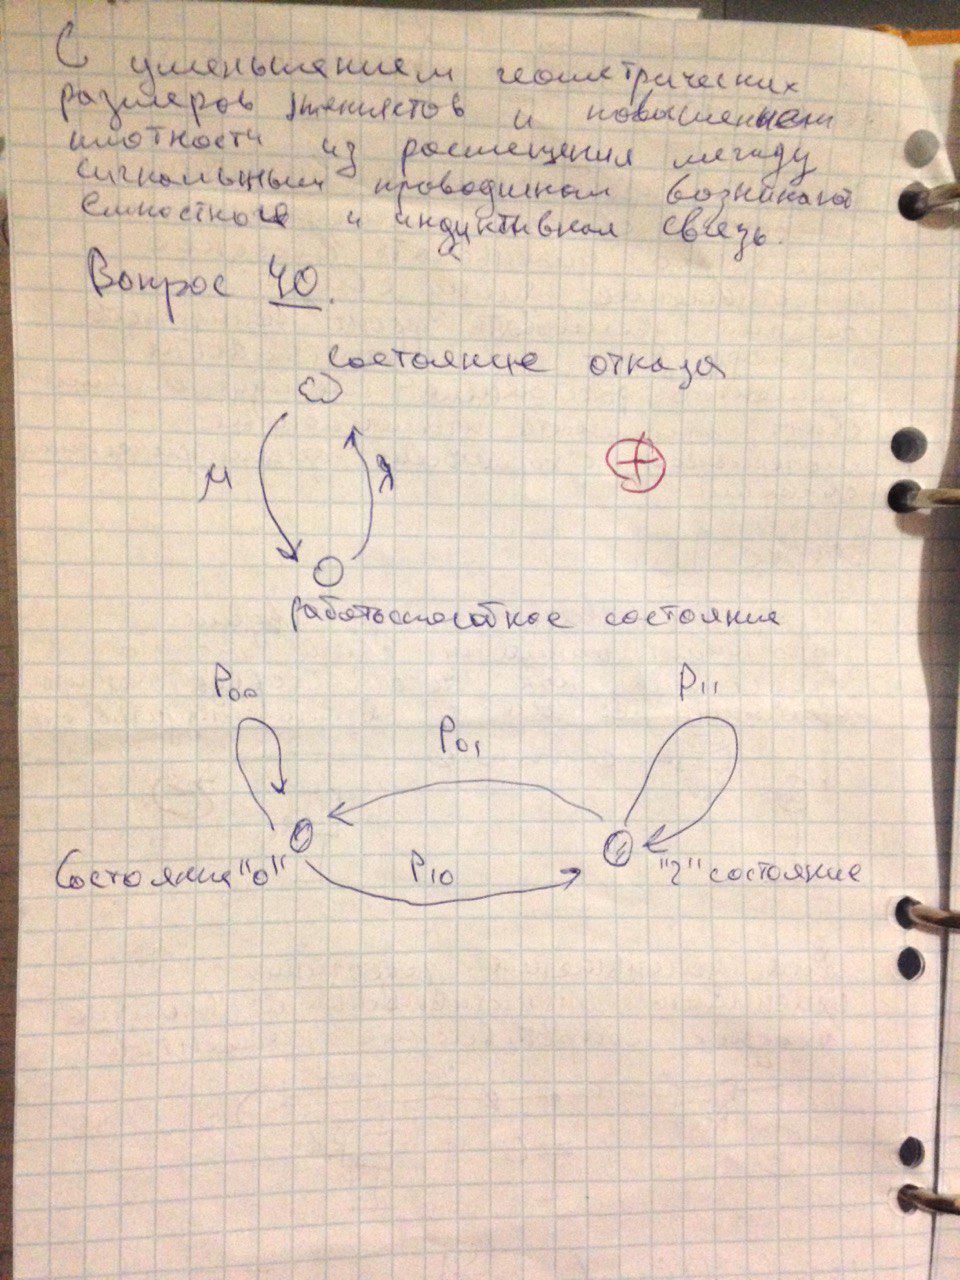 С уменьшением геометрических
размеров элементов и повышением
плотности из размещения между
сигнальными проводникам возникают
емкостная и индуктивная связь.
Вопрос 40.
состояние отказа
μ λ
работоспособное состояние
P00 P11
P01
Состояние "0" P10 "1" состояние